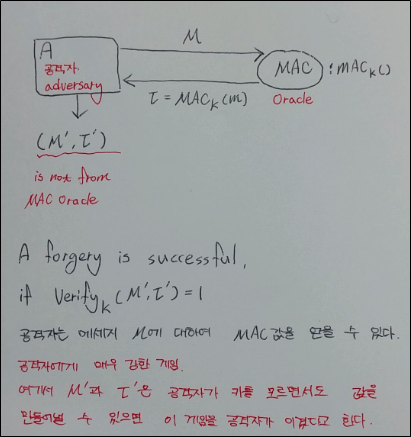 A
공격자
adversary
M
MAC : MACK()
Oracle
τ = MACK(m)
(M', τ')
is not from
MAC Oracle
A forgery is successful,
if VerifyK(M', τ') = 1
공격자는 메세지 M에 대하여 MAC값을 얻을 수 있다.
공격자에게 매우 강한 게임.
여기서 M'과 τ'은 공격자가 키를 모르면서도 값을
만들어낼 수 있으면 이 게임을 공격자가 이겼다고 한다.